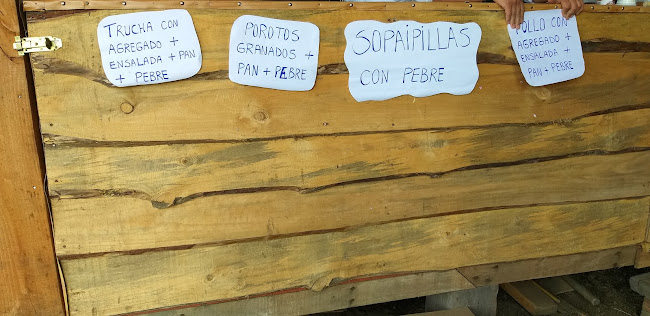 TRUCHA CON
AGREGADO +
ENSALADA + PAN
+ PEBRE
POROTOS
GRANADOS +
PAN + PEBRE
SOPAIPILLAS
CON PEBRE
POLLO CON
AGREGADO +
ENSALADA +
PAN + PEBRE